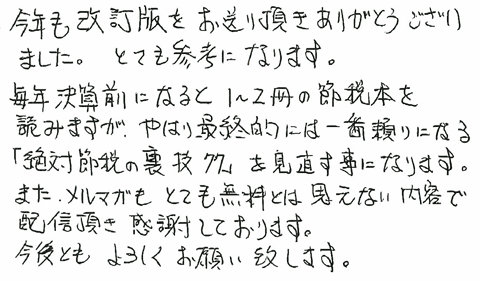 今年も改訂版をお送り頂きありがとうござい
ました。とても参考になります。
毎年決算前になると1~2冊の節税本を
読みますが、やはり最終的には一番頼りになる
「絶対節税の裏技77」を見直す事になります。
また、メルマガもとても無料とは思えない内容で
配信頂き感謝しております。
今後ともよろしくお願い致します。